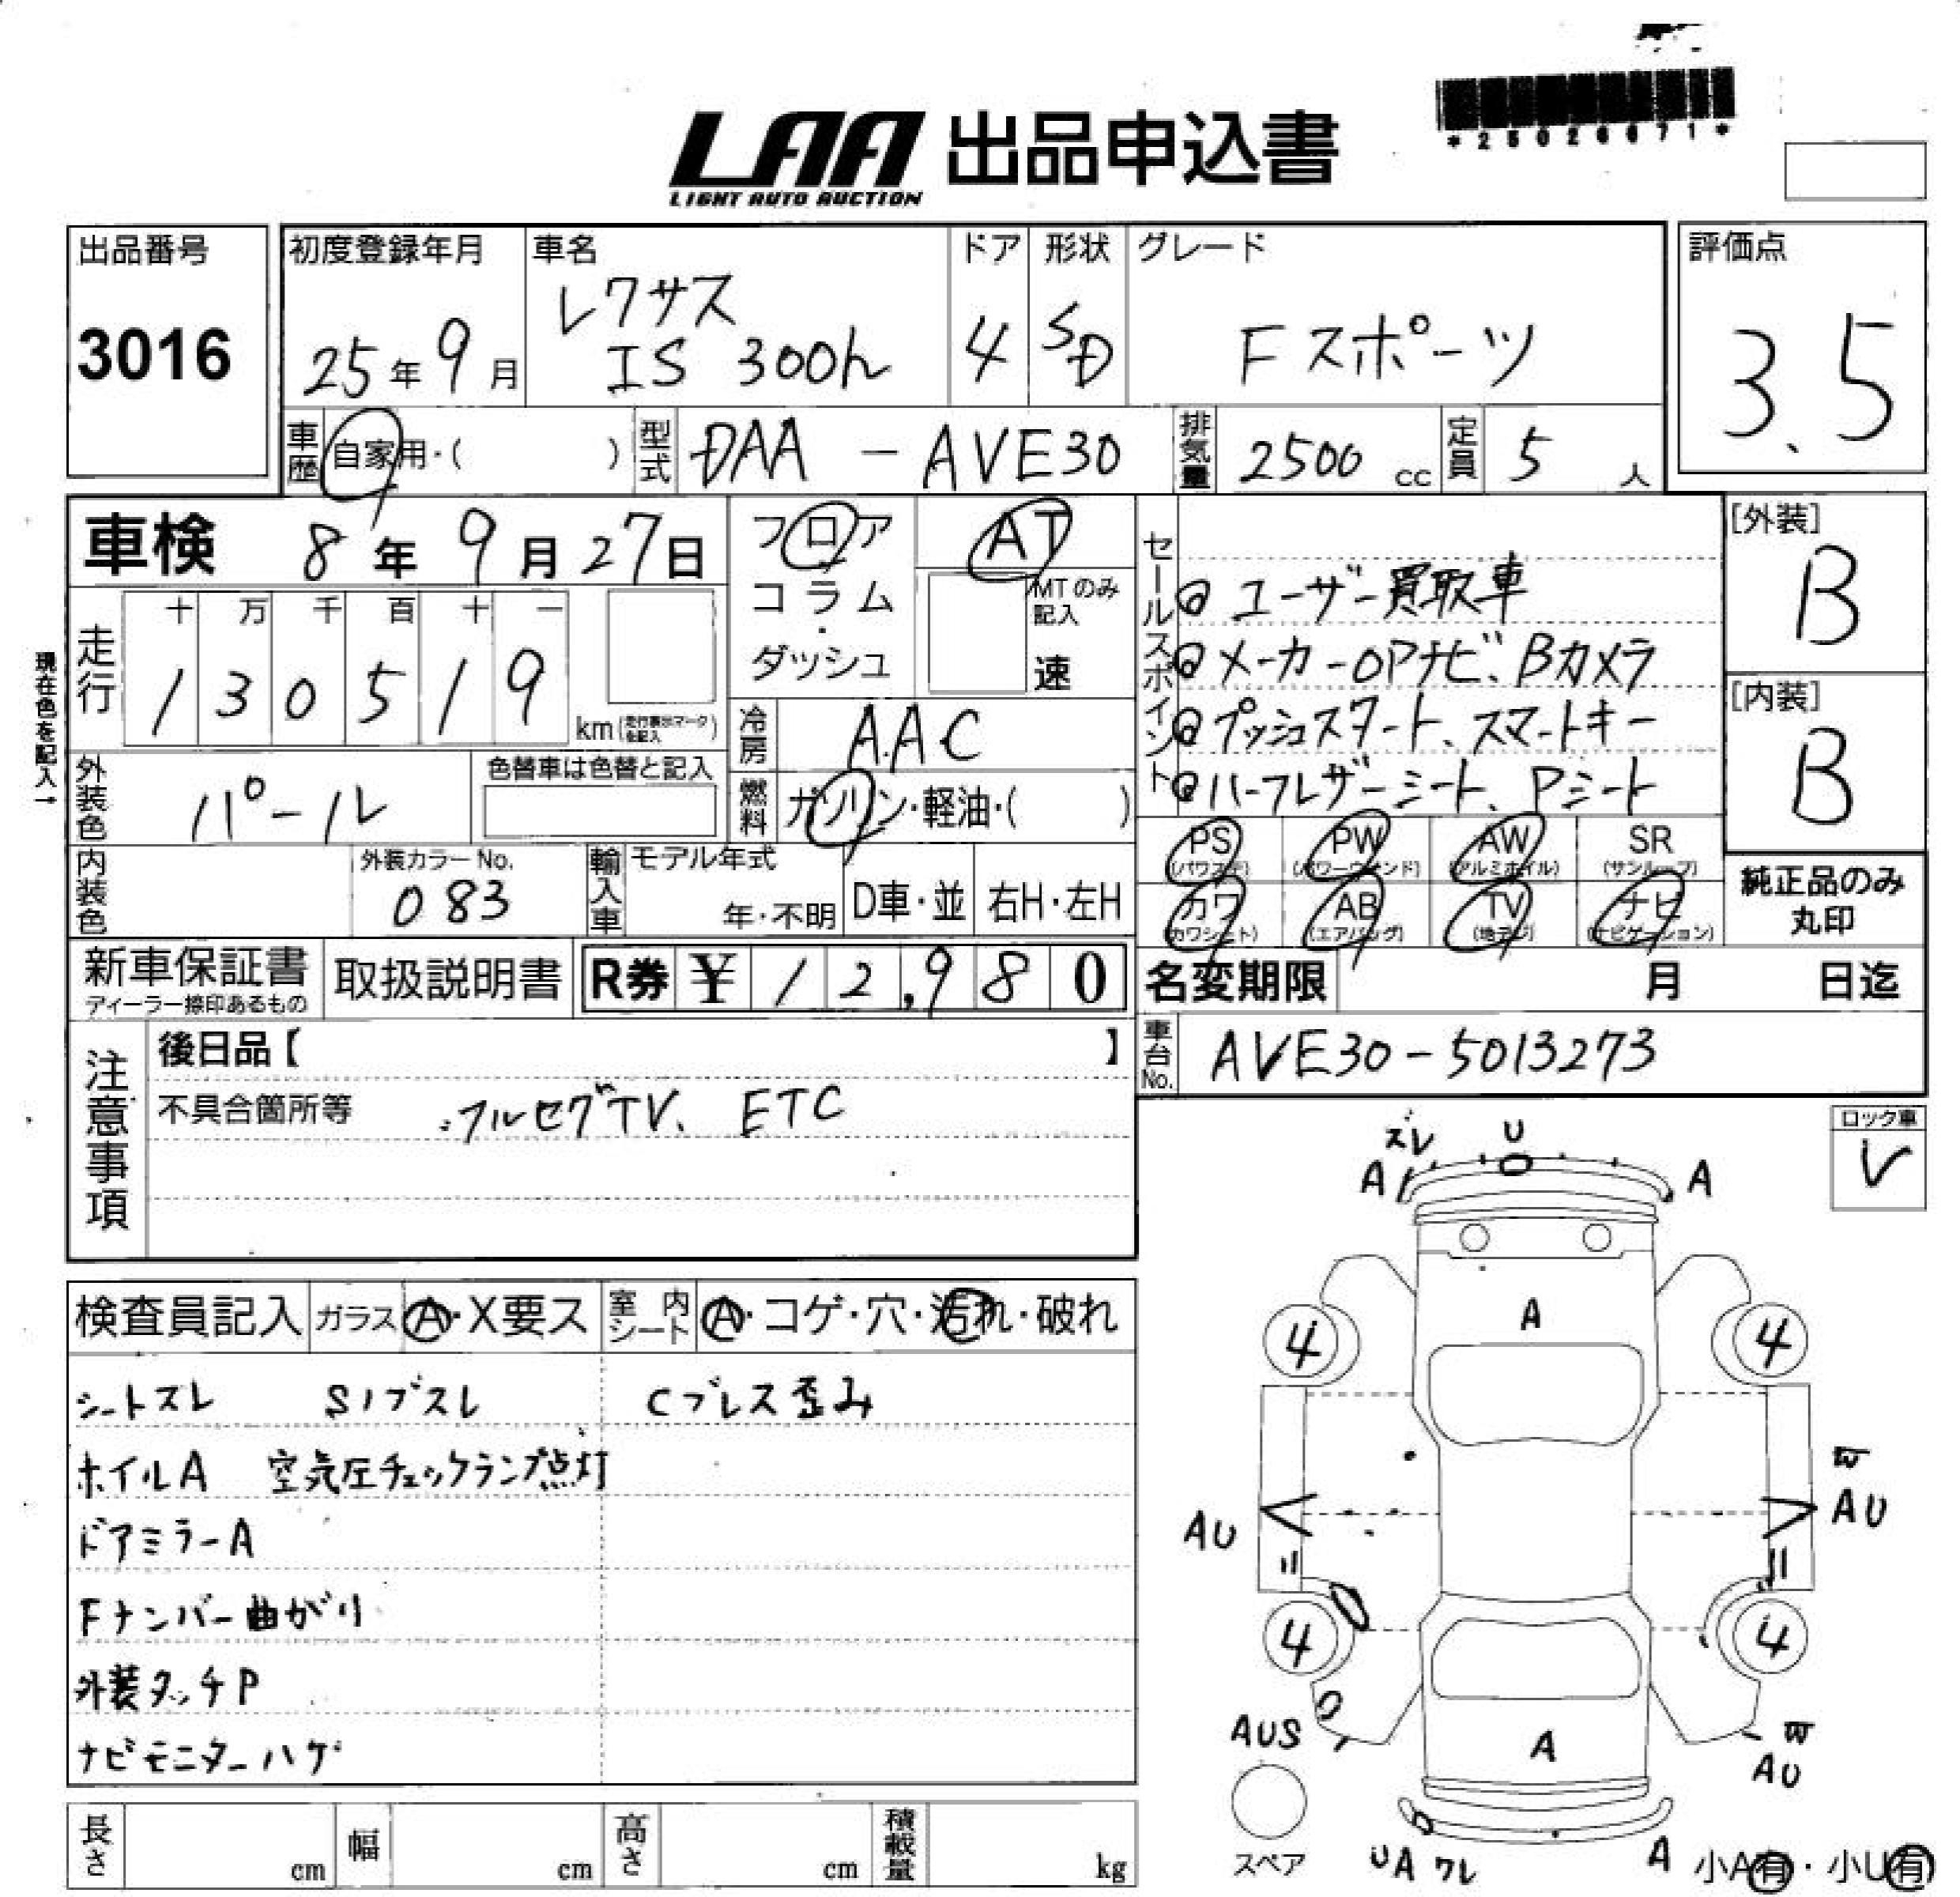 *25026671*
LAA 出品申込書
LIGHT AUTO AUCTION
出品番号
3016
初度登録年月
25年9月
車名
レクサス
IS 300h
ドア
4
形状
SD
グレード
Fスポーツ
評価点
3.5
車歴 自家用・( )
型式 DAA-AVE30
排気量 2500 cc
定員 5人
車検 8年9月27日
フロア
コラム
・
ダッシュ
AT
MTのみ
記入
速
走行
十 万 千 百 十 一
1 3 0 5 1 9
km(走行表示マークを記入)
現在色を記入→
冷房 AAC
燃料 ガソリン・軽油・( )
外装色 パール
色替車は色替と記入
内装色
外装カラーNo.
083
輸入車
モデル年式
年・不明
D車・並
右H・左H
セールスポイント
◎ユーザー買取車
◎メーカーOPナビ、Bカメラ
◎プッシュスタート、スマートキー
◎ハーフレザーシート、Pシート
[外装]
B
[内装]
B
PS
(パワステ)
PW
(パワーウインド)
AW
(アルミホイル)
SR
(サンルーフ)
カワ
(カワシート)
AB
(エアバッグ)
TV
(地デジ)
ナビ
(ナビゲーション)
純正品のみ
丸印
新車保証書
ディーラー捺印あるもの
取扱説明書
R券 ¥12,980
名変期限 月 日迄
車台No. AVE30-5013273
注意事項
後日品【 】
不具合箇所等 フルセグTV、ETC
ロック車
レ
検査員記入
ガラス A・X要ス
室内シート A・コゲ・穴・汚れ・破れ
シートスレ Sノブスレ Cブレス歪み
ホイルA 空気圧チェックランプ点灯
ドアミラーA
Fナンバー曲がり
外装タッチP
ナビモニターハゲ
ズレ
U
A
A
A
4
4
W
AU
AU
4
4
AUS
A
W
AU
スペア
UA ワレ
A
小A有・小U有
長さ cm
幅 cm
高さ cm
積載量 kg